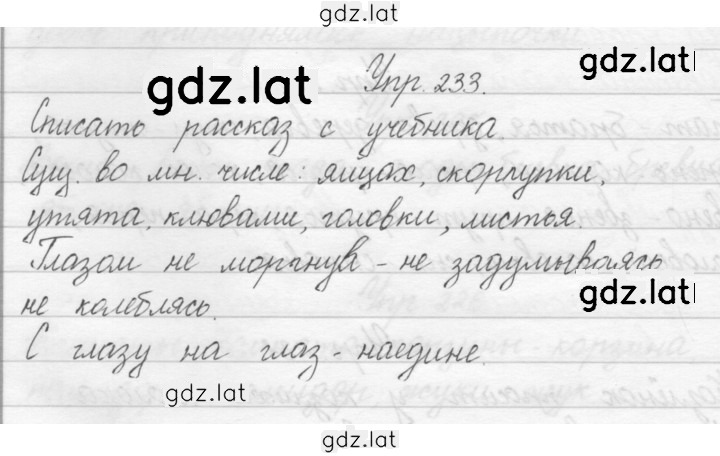 gdz.lat
gdz.lat
Упр. 233.
gdz.lat
Списать рассказ с учебника.
Сущ. во мн. числе: яйцах, скорлупки,
утята, клювами, головки, листья.
Глазом не моргнув - не задумываясь,
не колеблясь.
gdz.lat
С глазу на глаз - наедине.
gdz.lat
gdz.lat